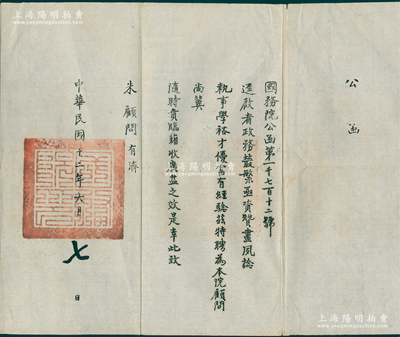 上海陽明拍賣
公函
國務院公函第一千七百十二號
逕啟者政務叢繁亟資贊畫夙諗
執事學裕才優富有經驗茲特聘為本院顧問
尚冀
隨時賁臨藉收輿益之效是幸此致
朱顧問有濟
中華民國十二年六月七日
上海陽明拍賣